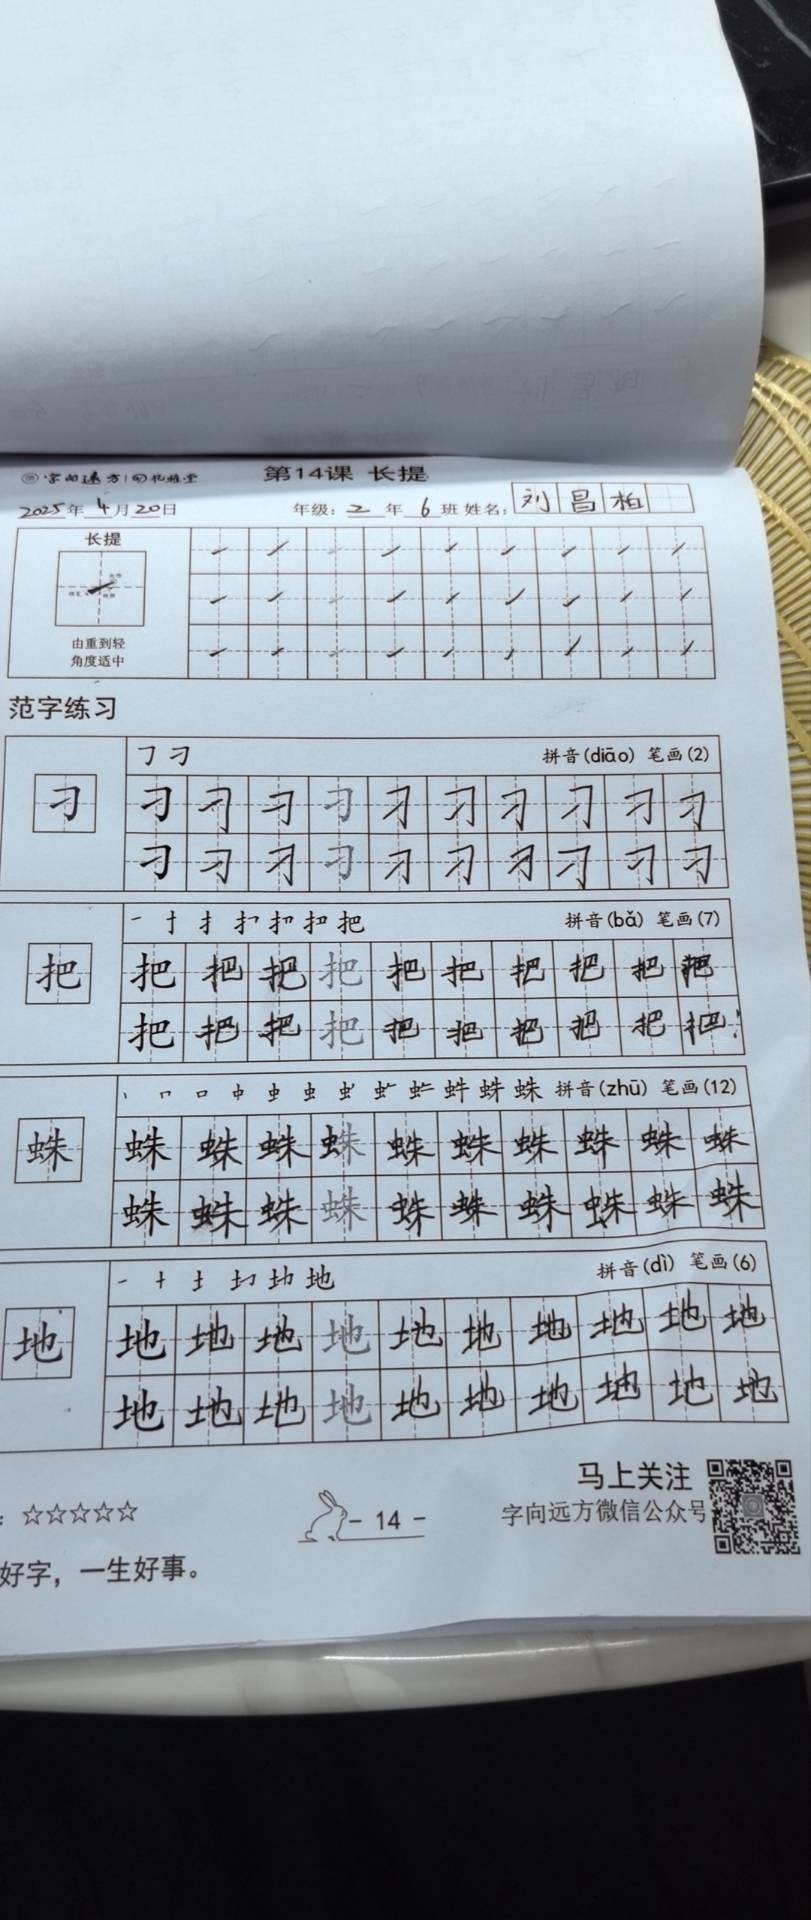 字向远方
第14课 长提
2025年 4月20日 年级：2 年 6 班 姓名：刘昌柏
长提
由重到轻
角度适中
范字练习
㇆ 刁 拼音(diāo) 笔画(2)
刁 刁 刁 刁 刁 刁 刁 刁 刁 刁 刁
刁 刁 刁 刁 刁 刁 刁 刁 刁 刁
把 拼音(bǎ) 笔画(7)
把 把 把 把 把 把 把 把 把 把 把
把 把 把 把 把 把 把 把 把 把
蛛 拼音(zhū) 笔画(12)
蛛 蛛 蛛 蛛 蛛 蛛 蛛 蛛 蛛 蛛 蛛
蛛 蛛 蛛 蛛 蛛 蛛 蛛 蛛 蛛 蛛
地 拼音(dì) 笔画(6)
地 地 地 地 地 地 地 地 地 地 地
地 地 地 地 地 地 地 地 地 地
：☆☆☆☆☆
- 14 -
马上关注
字向远方微信公众号
好字，一生好事。